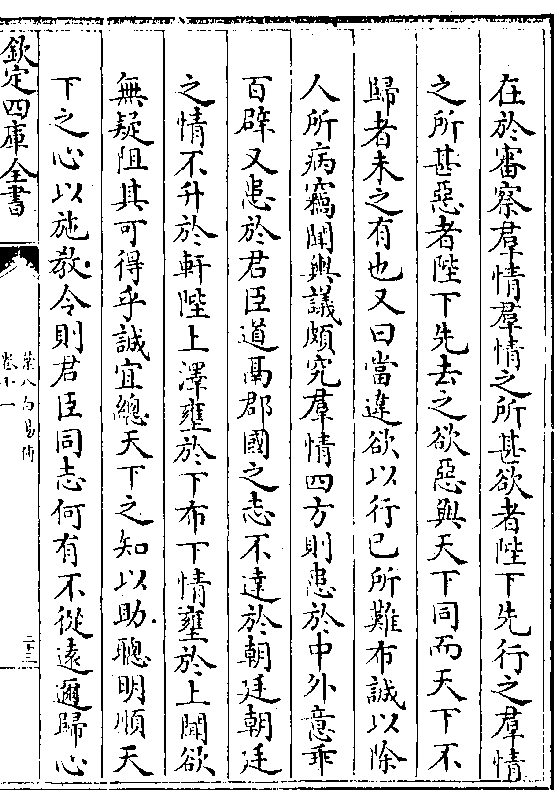 在於審察羣情羣情之所甚欲者陛下先行之羣情
之所甚惡者陛下先去之欲惡與天下同而天下不
歸者未之有也又曰當違欲以行已所難布誠以除
人所病竊聞輿議頗究羣情四方則患於中外意乖
百辟又患於君臣道鬲郡國之志不達於朝廷朝廷
之情不升於軒陛上澤壅於下布下情壅於上聞欲
無疑阻其可得乎誠宜總天下之知以助聰明順天
下之心以施教令則君臣同志何有不從遠邇歸心
欽定四庫全書
卷十一
二十三